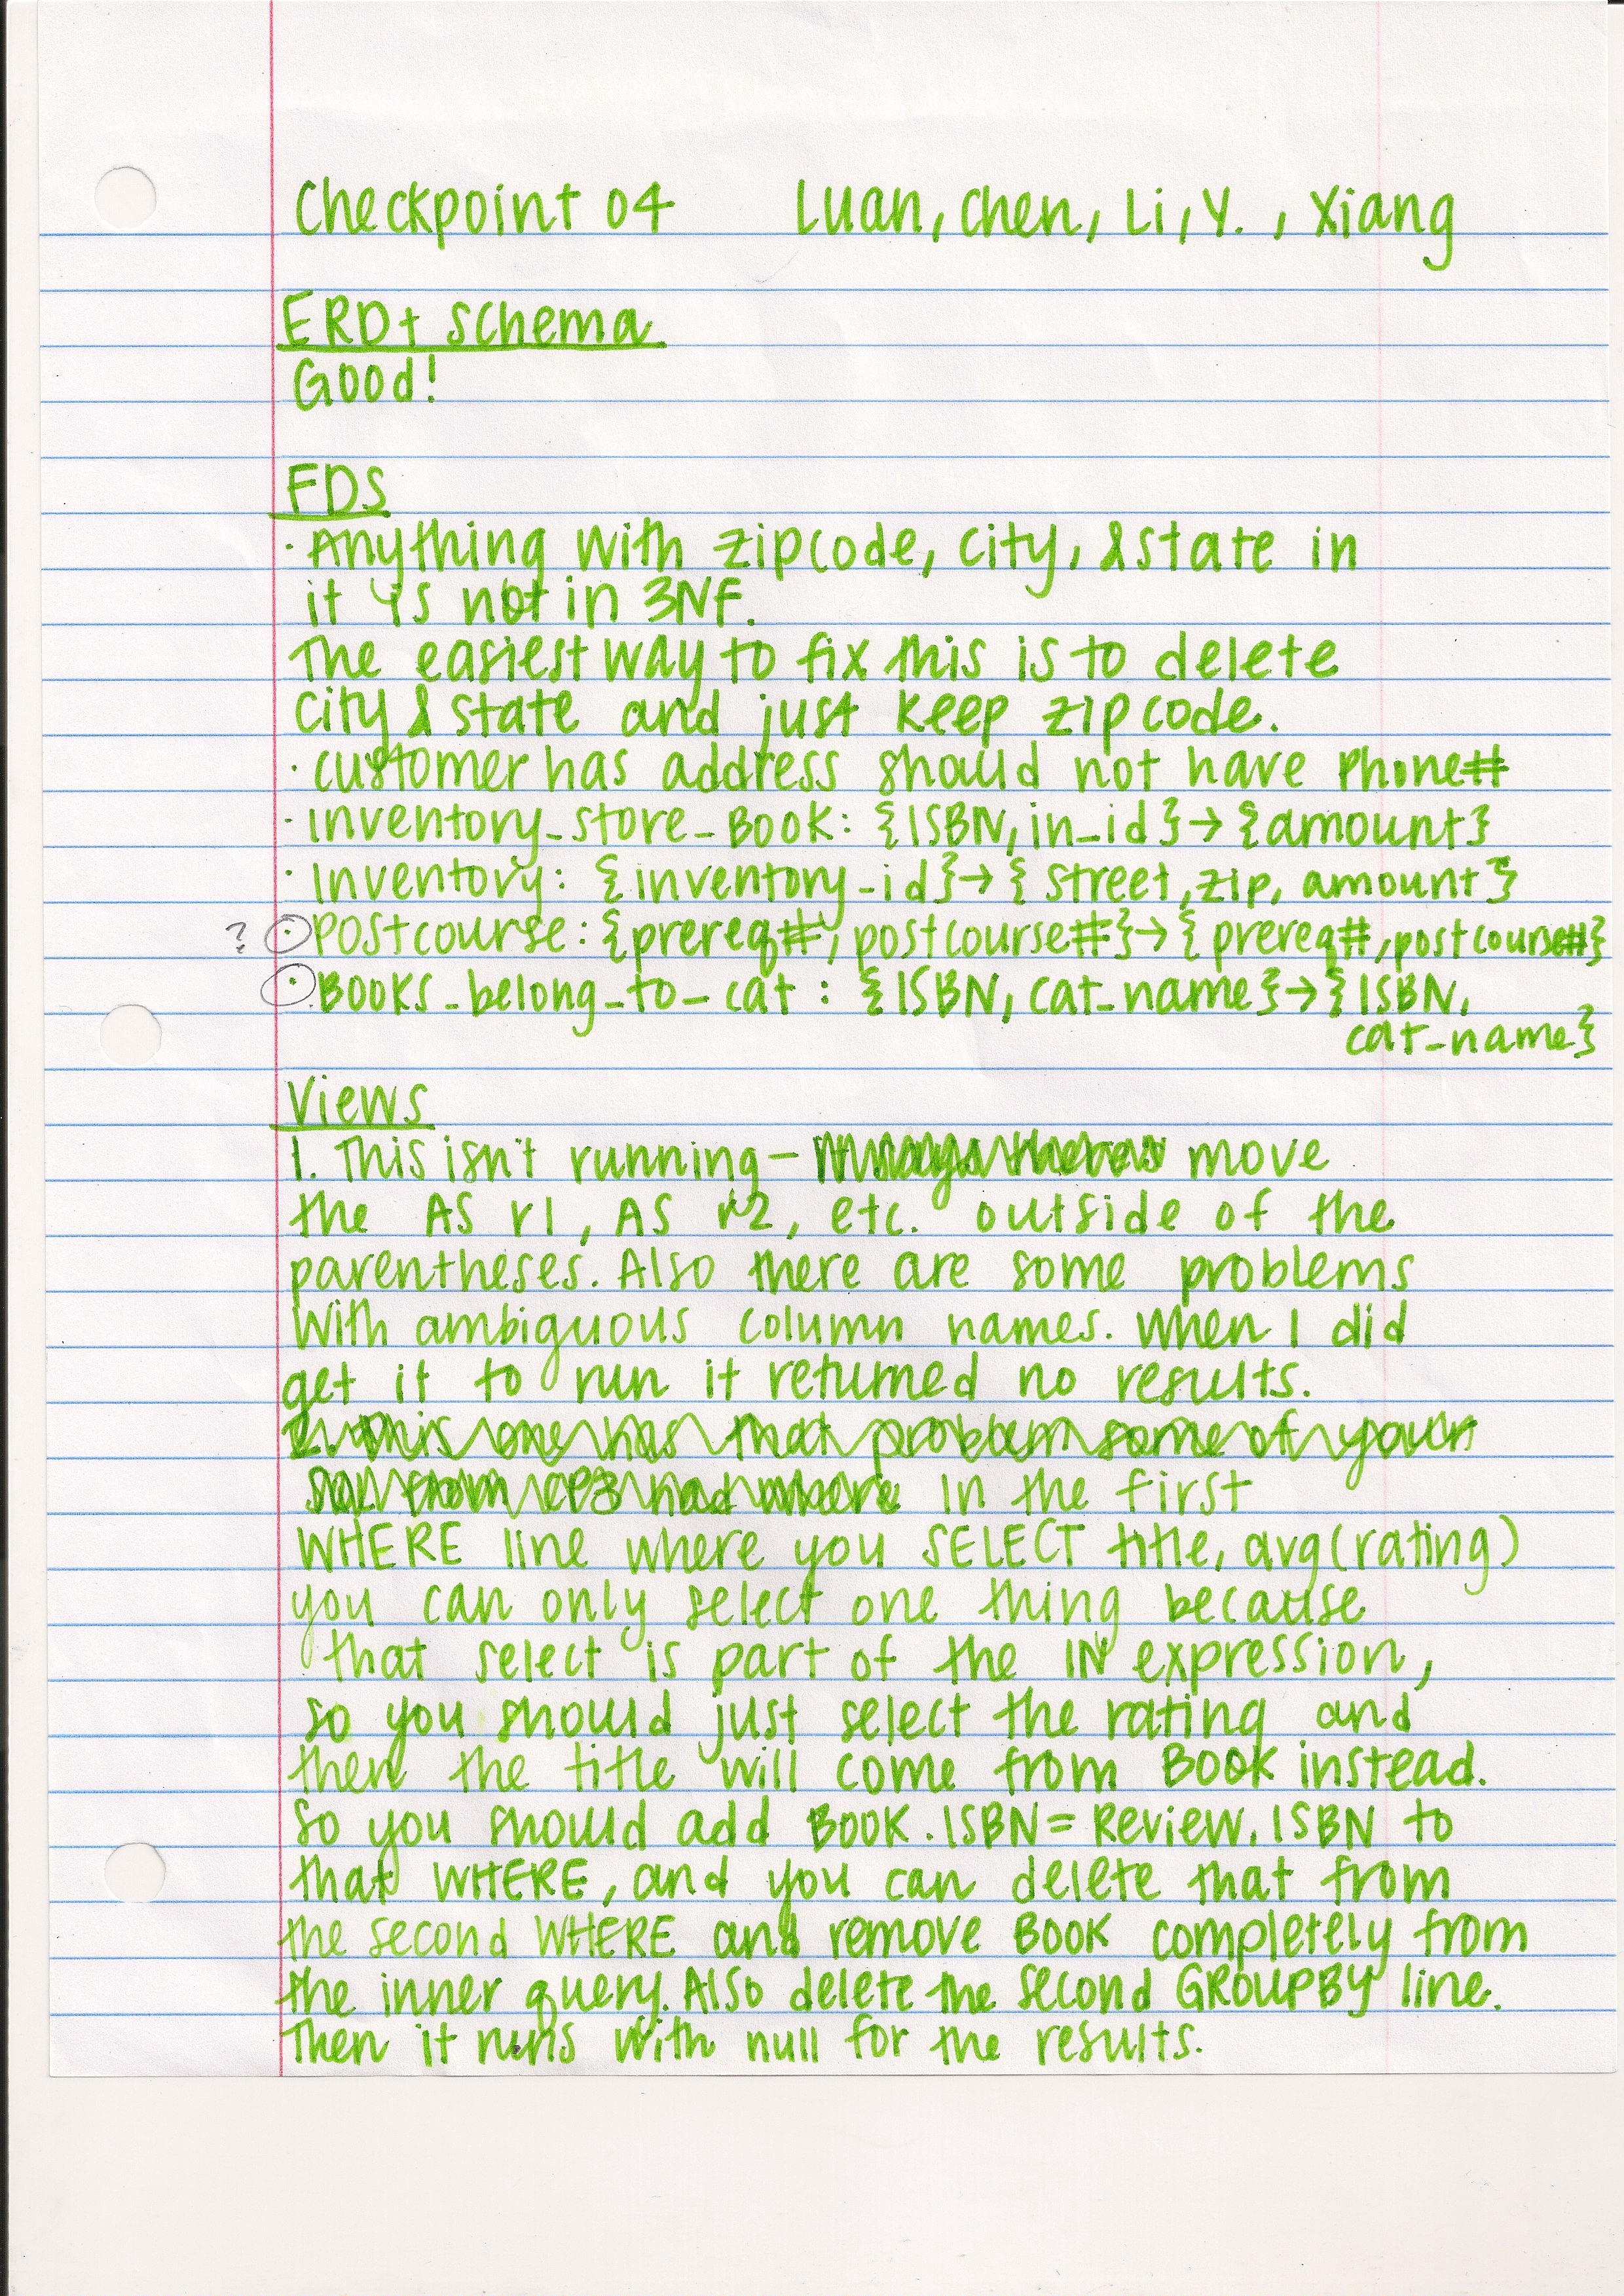 Checkpoint 04 Luan, Chen, Li, Y., Xiang
ERD + Schema
Good!
FDs
· Anything with zipcode, city, & state in
it is not in 3NF.
The easiest way to fix this is to delete
city & state and just keep zipcode.
· customer has address should not have Phone#
· Inventory_store_Book: {ISBN, in_id} → {amount}
· Inventory: {inventory_id} → {street, zip, amount}
? · Postcourse: {prereq#, postcourse#} → {prereq#, postcourse#}
· Books_belong_to_cat: {ISBN, cat_name} → {ISBN,
cat_name}
Views
1. This isn't running - move
the AS r1, AS r2, etc. outside of the
parentheses. Also there are some problems
with ambiguous column names. When I did
get it to run it returned no results.
2. This one has that problem some of your
from CP3 had where In the first
WHERE line where you SELECT title, avg(rating)
you can only select one thing because
that select is part of the IN expression,
so you should just select the rating and
then the title will come from Book instead.
So you should add Book.ISBN = Review.ISBN to
that WHERE, and you can delete that from
the second WHERE and remove Book completely from
the inner query. Also delete the second GROUP BY line.
Then it runs with null for the results.